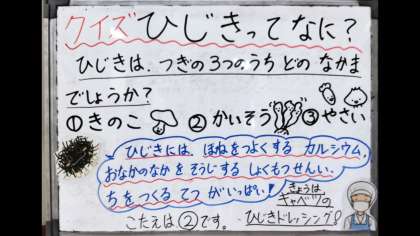 クイズひじきってなに?
ひじきは、つぎの3つのうち どの なかま
でしょうか?
①きのこ ②かいそう ③やさい
ひじきには、ほねをつよくする カルシウム、
おなかのなかを そうじする しょくもつせんい、
ちをつくる てつ がいっぱい!
きょうは
キャベツの
ひじきドレッシング!
こたえは ② です。